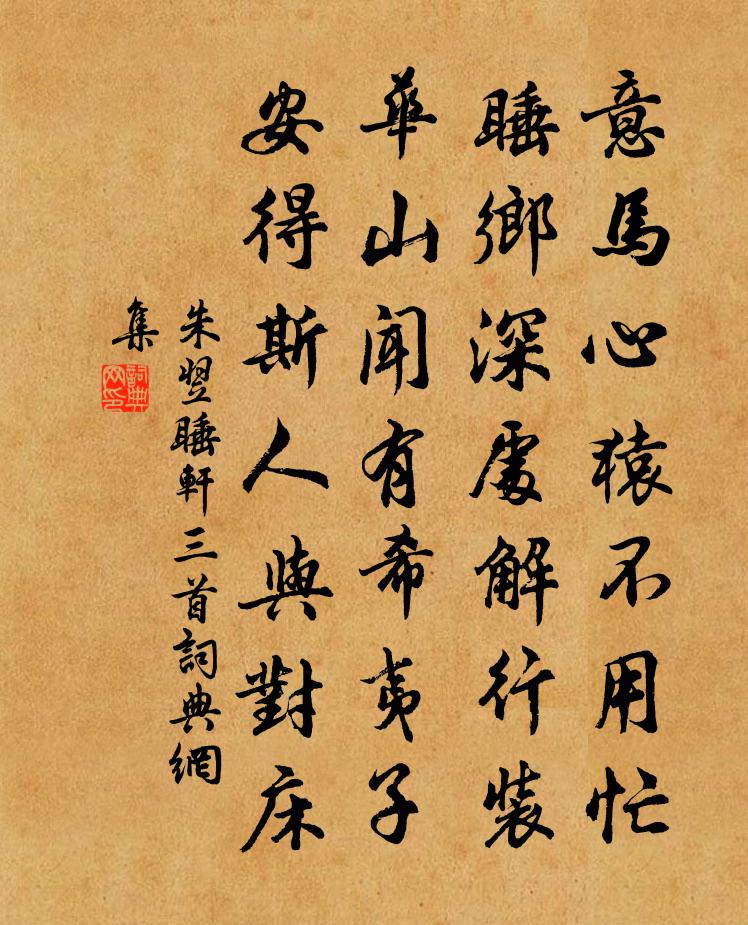 意馬心猿不用忙
睡鄉深處解行裝
華山聞有希夷子
安得斯人與對床
朱翌睡軒三首詞典網
集
詞典網印